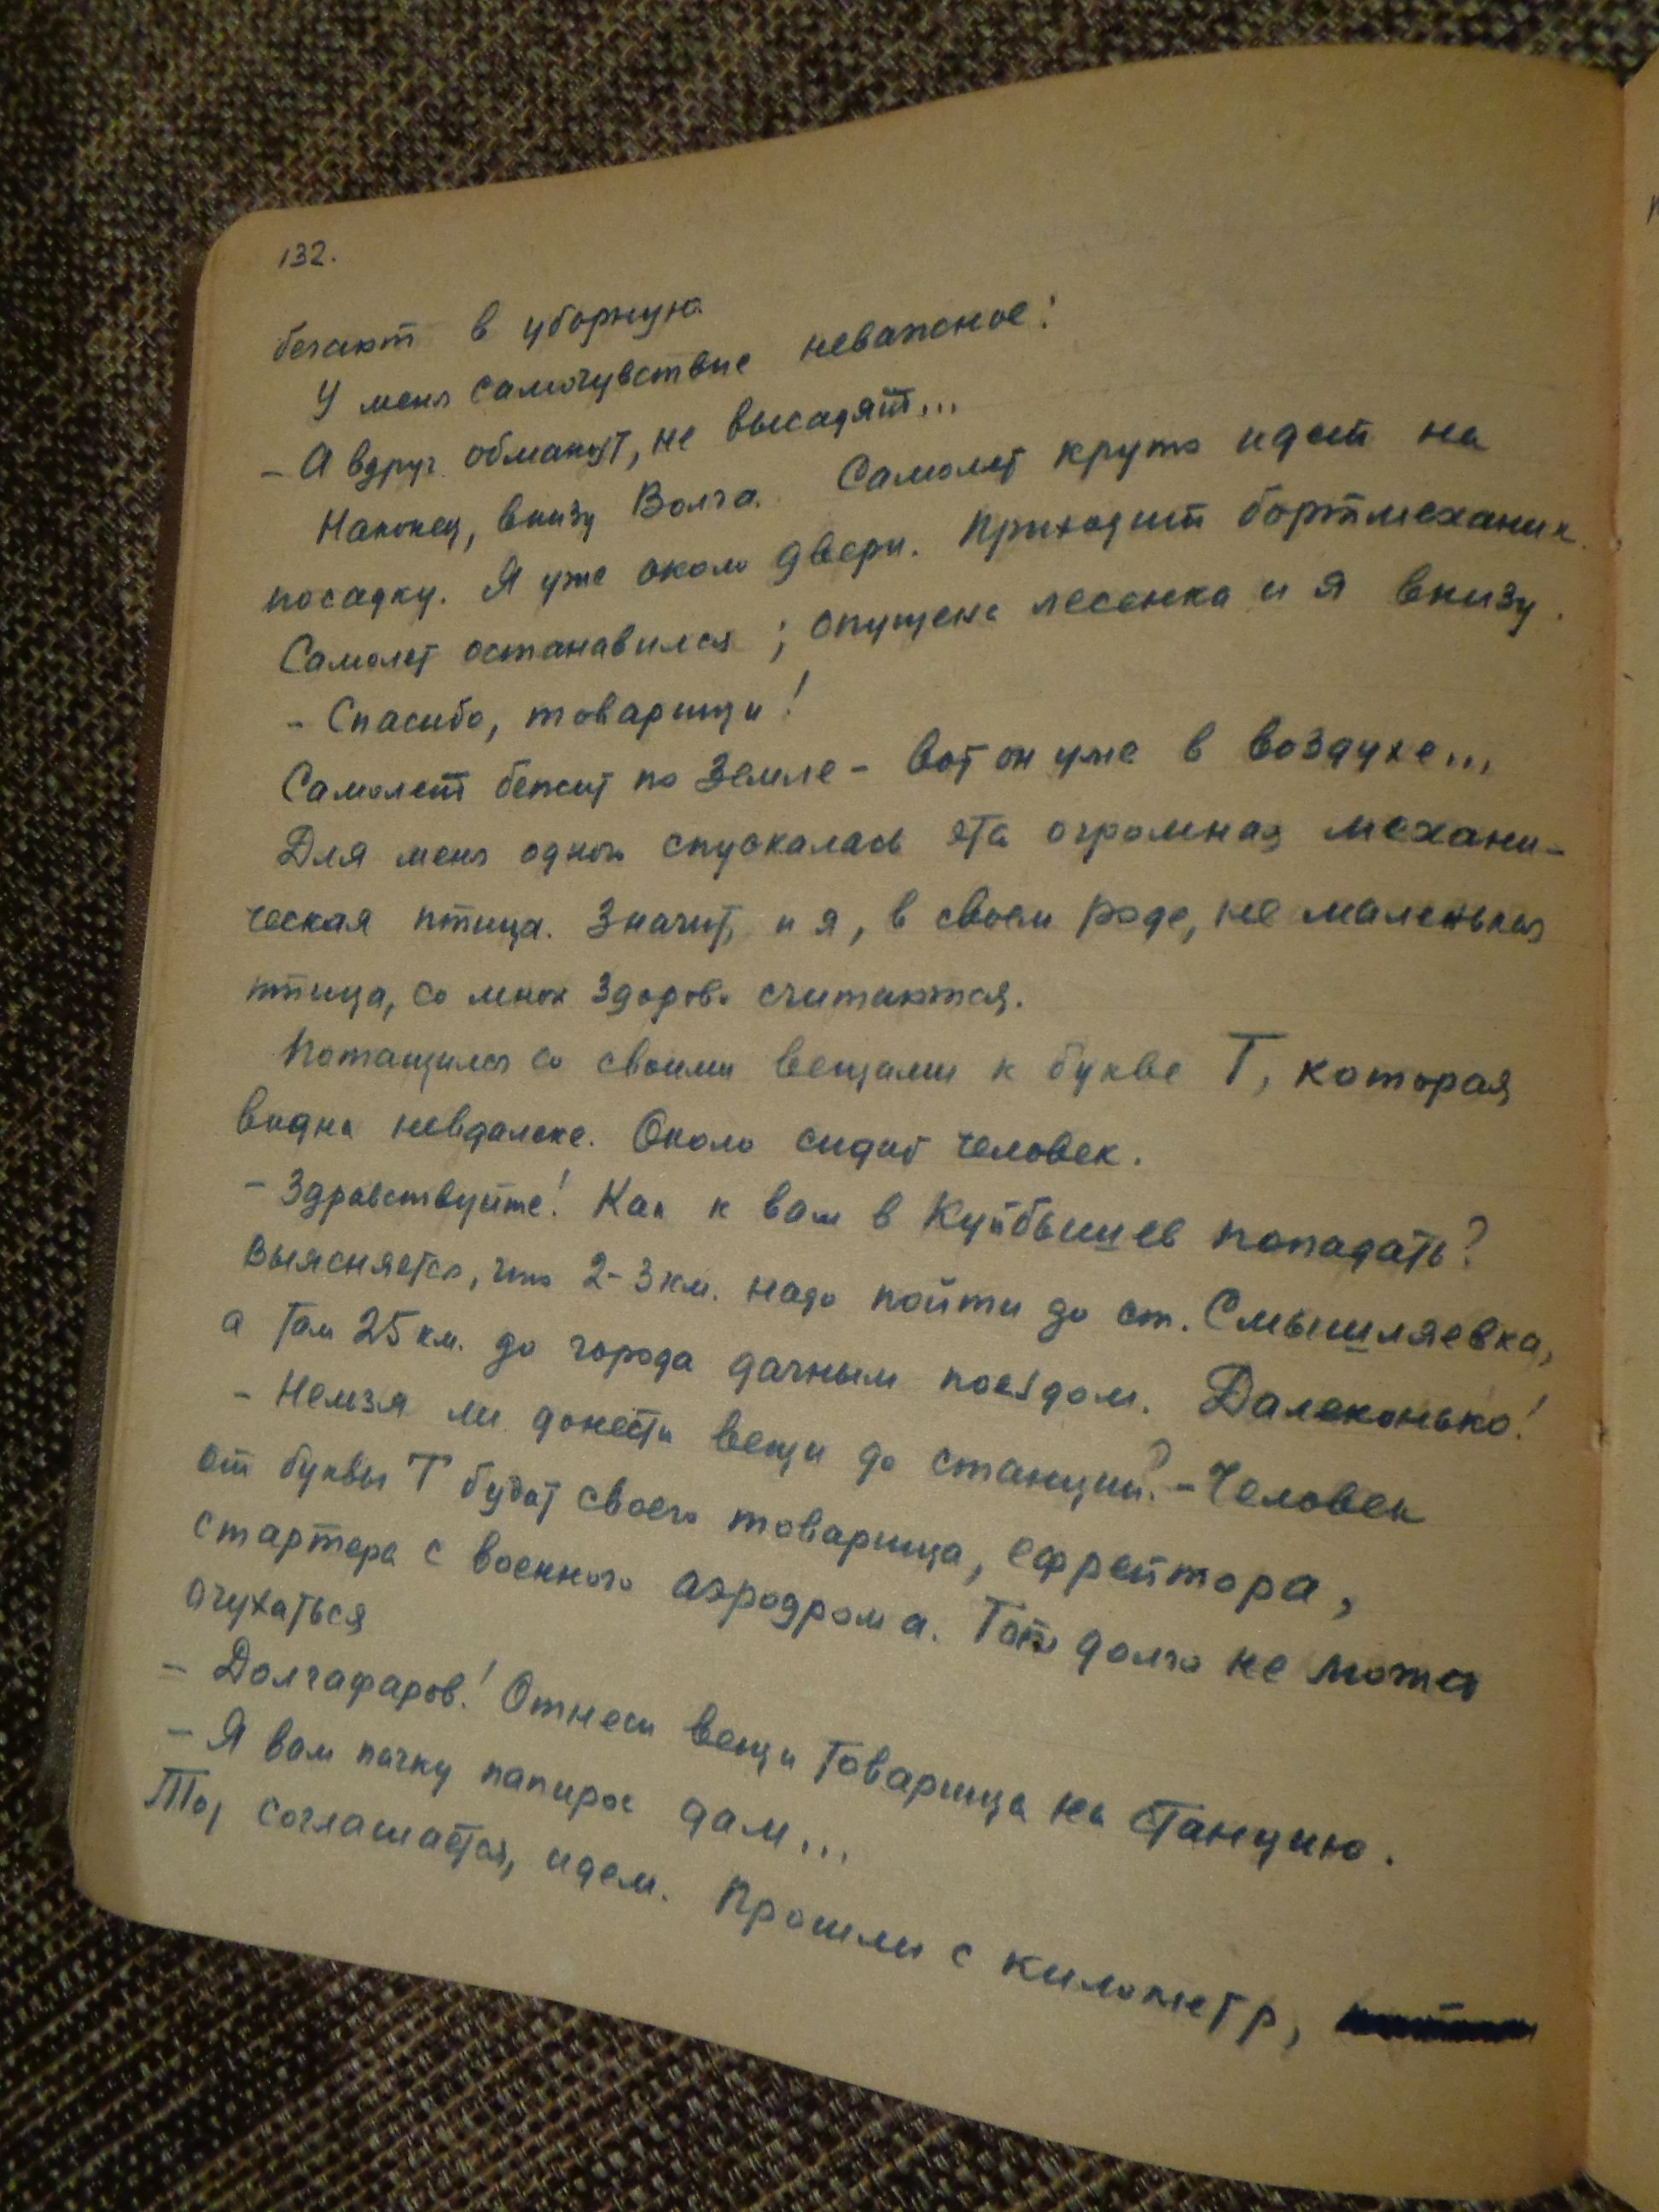 132.
бегают в уборную.
У меня самочувствие неважное:
- А вдруг обманут, не высадят...
Наконец, внизу Волга. Самолет круто идет на
посадку. Я уже около двери. Приходит бортмеханик.
Самолет останавился; опущена лесенка и я внизу.
- Спасибо, товарищи!
Самолет бежит по земле - вот он уже в воздухе...
Для меня одного спускалась эта огромная механи-
ческая птица. Значит, и я, в своем роде, не маленькая
птица, со мной здорово считаются.
Потащился со своими вещами к букве Т, которая
видна невдалеке. Около сидит человек.
- Здравствуйте! Как к вам в Куйбышев попадать?
Выясняется, что 2-3 км. надо пойти до ст. Смышляевка,
а там 25 км. до города дачным поездом. Далеконько!
- Нельзя ли донести вещи до станции? - Человек
от буквы Т будит своего товарища, ефрейтора,
стартера с военного аэродрома. Тот долго не может
очухаться
- Долгафаров! Отнеси вещи товарища на станцию.
- Я вам пачку папирос дам...
Тот соглашается, идем. Прошли с километр,